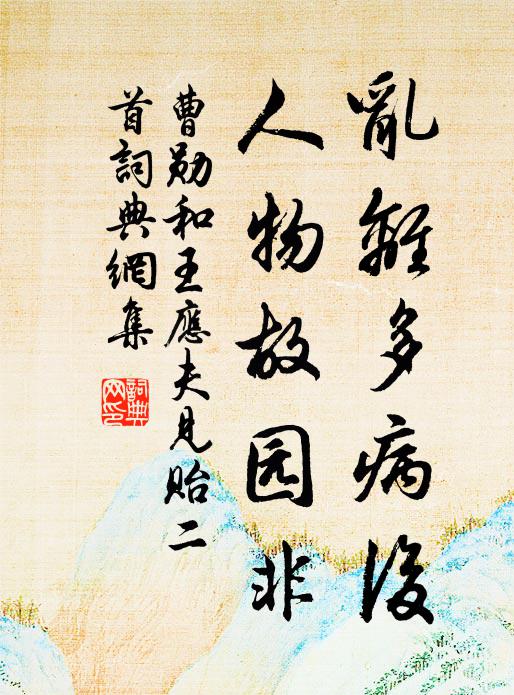 亂離多病後
人物故园非
曹勛和王應夫見貽二
首詞典網集
詞典网印